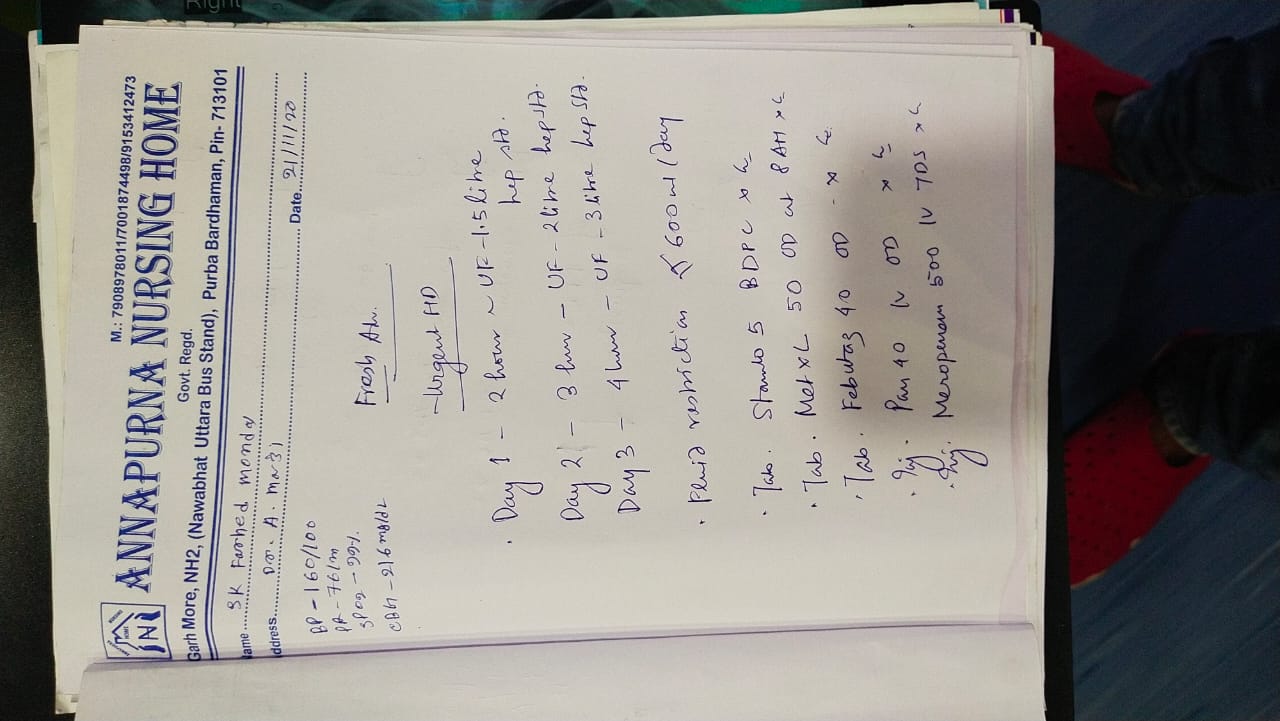 Right
M.: 7908978011/7001874498/9153412473
ANNAPURNA NURSING HOME
Govt. Regd.
Garh More, NH2, (Nawabhat Uttara Bus Stand), Purba Bardhaman, Pin- 713101
Name SK Farhed mondal
Address Dr. A. Date 21/11/20
BP - 160/100
PR - 76/m
SPO2 - 99%
CBG - 216 mg/dL
Fresh Adv.
- Urgent HD
• Day 1 - 2 hour ~ UF - 1.5 litre
hep std.
Day 2 - 3 hour - UF - 2 litre hep std.
Day 3 - 4 hour - UF - 3 litre hep std.
• Fluid restriction 600 ml / day
• Tab. Stamlo 5 BDPC x
• Tab. Met XL 50 OD at 8 AM x
• Tab. Febutaz 40 OD - x
• Inj. Pan 40 IV OD x
• Inj. Meropenem 500 IV TDS x